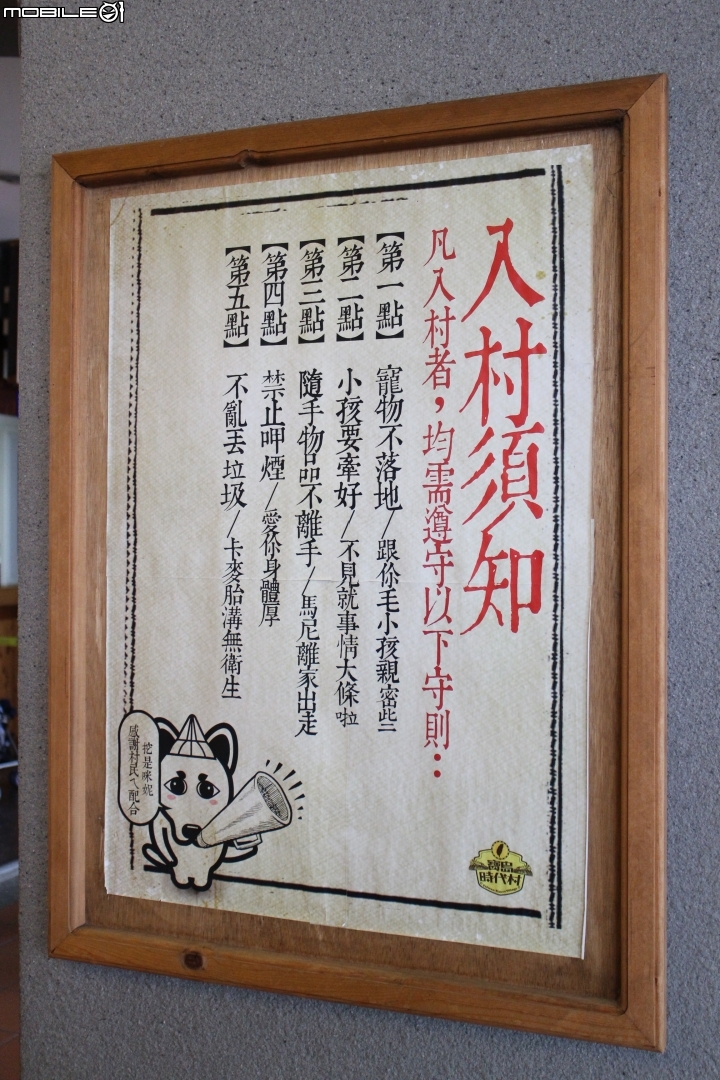 MOBILE01
入村須知
凡入村者，均需遵守以下守則：
【第一點】 寵物不落地／跟你毛小孩親密些
【第二點】 小孩要牽好／不見就事情大條啦
【第三點】 隨手物品不離手／馬尼離家出走
【第四點】 禁止呷煙／愛你身體厚
【第五點】 不亂丟垃圾／卡麥胎溝無衛生
挖是咪妮
感謝村民ㄟ配合
寶島
時代村